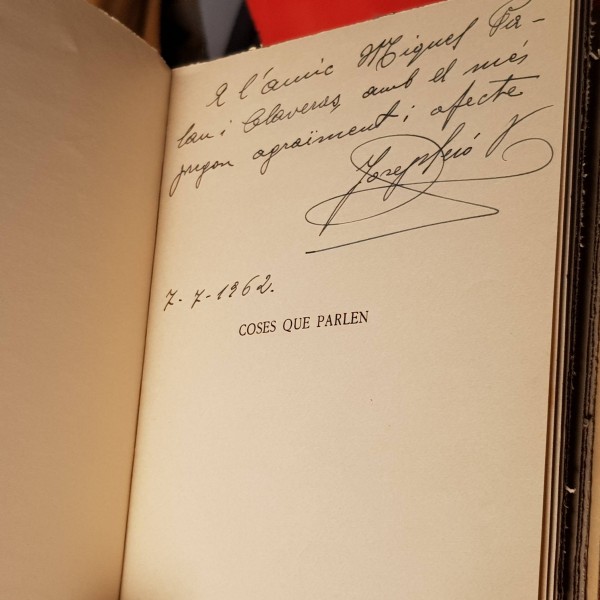 A l'amic Miquel Pa-
lau i Claveras, amb el més
pregon agraïment i afecte
Josep Ició
7-7-1962.
COSES QUE PARLEN